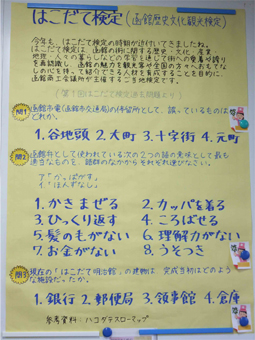 はこだて検定(函館歴史文化観光検定)
今年も、はこだて検定の時期が近付いてきましたね。
はこだて検定は、函館の街に関する歴史・文化・産業・
地理・人々の暮らしなどの学習を通じて街への愛着や誇り
を再認識し、函館の魅力を観光客や全国の方々へおもてな
しの心を持って紹介できる人材を育成することを目的に、
函館商工会議所が主催するご当地検定です。
(第1回はこだて検定過去問題より)
問1
函館市電(函館市交通局)の停留所として、誤っているものは
どれか。
1.谷地頭 2.大町 3.十字街 4.元町
問2
函館弁として使われている次の2つの語の意味として最も
適当なものを、語群のなかからそれぞれ選びなさい。
ア「かっぱがす」
イ「ほんずなし」
1.かきまぜる 2.カッパを着る
3.ひっくり返す 4.ころばせる
5.髪のもがない 6.理解力がない
7.お金がない 8.うそつき
問3
現在の「はこだて明治館」の建物は、完成当初はどのよう
な施設だったか。
1.銀行 2.郵便局 3.領事館 4.倉庫
参考資料:ハコダテスローマップ